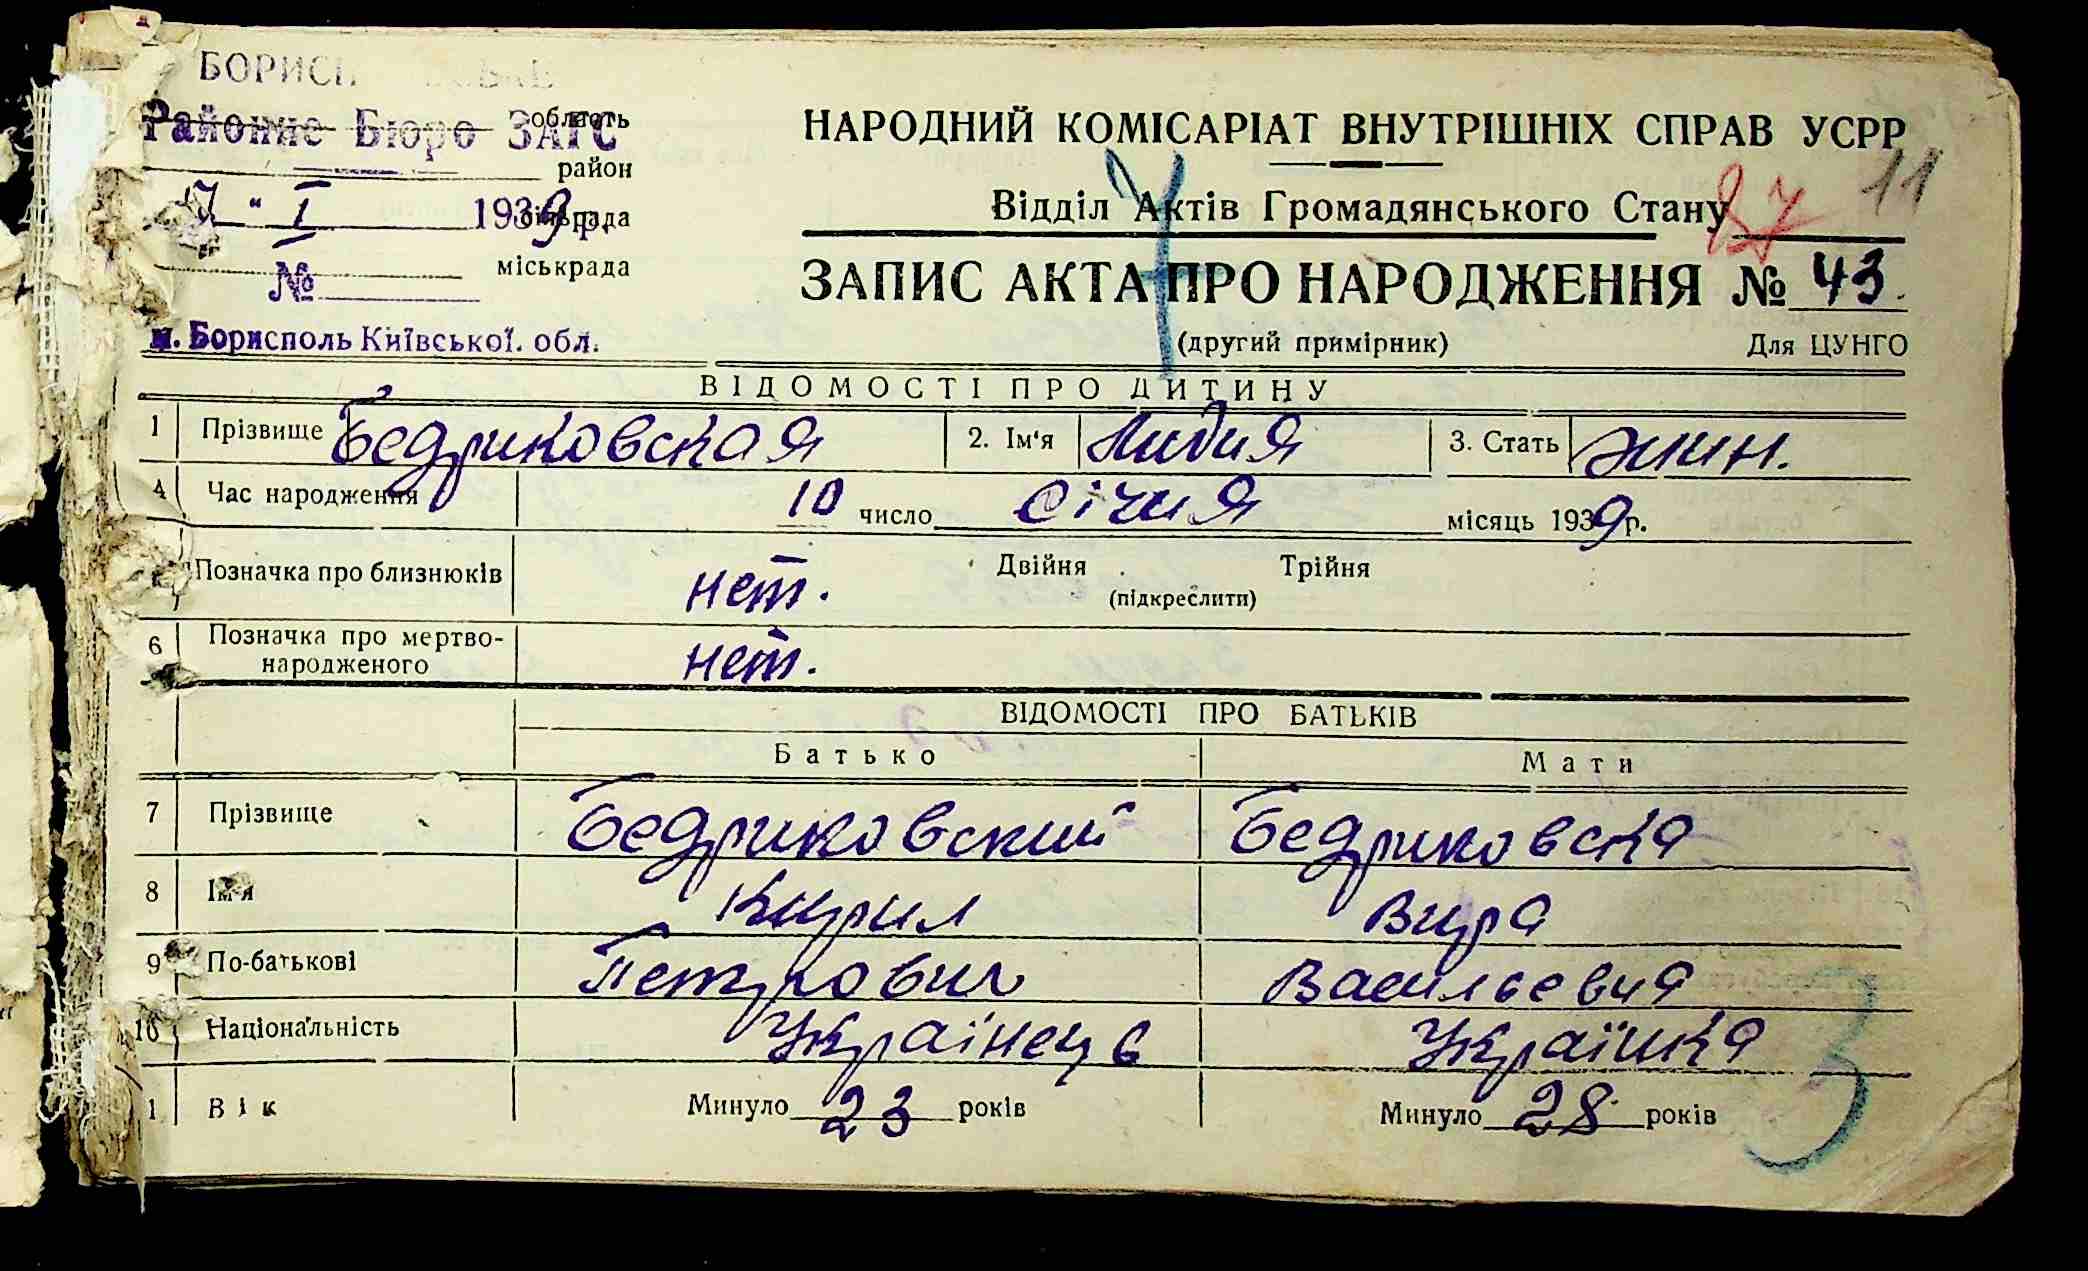 Районне Бюро ЗАГС
область
район
"I" 1939 р.
сільрада
№
міськрада
м. Борисполь Київської. обл.
НАРОДНИЙ КОМІСАРІАТ ВНУТРІШНІХ СПРАВ УСРР
11
Відділ Актів Громадянського Стану
ЗАПИС АКТА ПРО НАРОДЖЕННЯ № 43
(другий примірник) Для ЦУНГО
ВІДОМОСТІ ПРО ДИТИНУ
1 Прізвище Бедриковская 2. Ім'я Лидия 3. Стать жин.
4 Час народження 10 число січня місяць 1939 р.
Позначка про близнюків нет. Двійня Трійня
(підкреслити)
6 Позначка про мертво-
народженого нет.
ВІДОМОСТІ ПРО БАТЬКІВ
Батько Мати
7 Прізвище Бедриковский Бедриковска
8 Ім'я Кирил Вира
9 По-батькові Петрович Васильевна
10 Національність Українець Українка
1 Вік Минуло 23 років Минуло 28 років
3